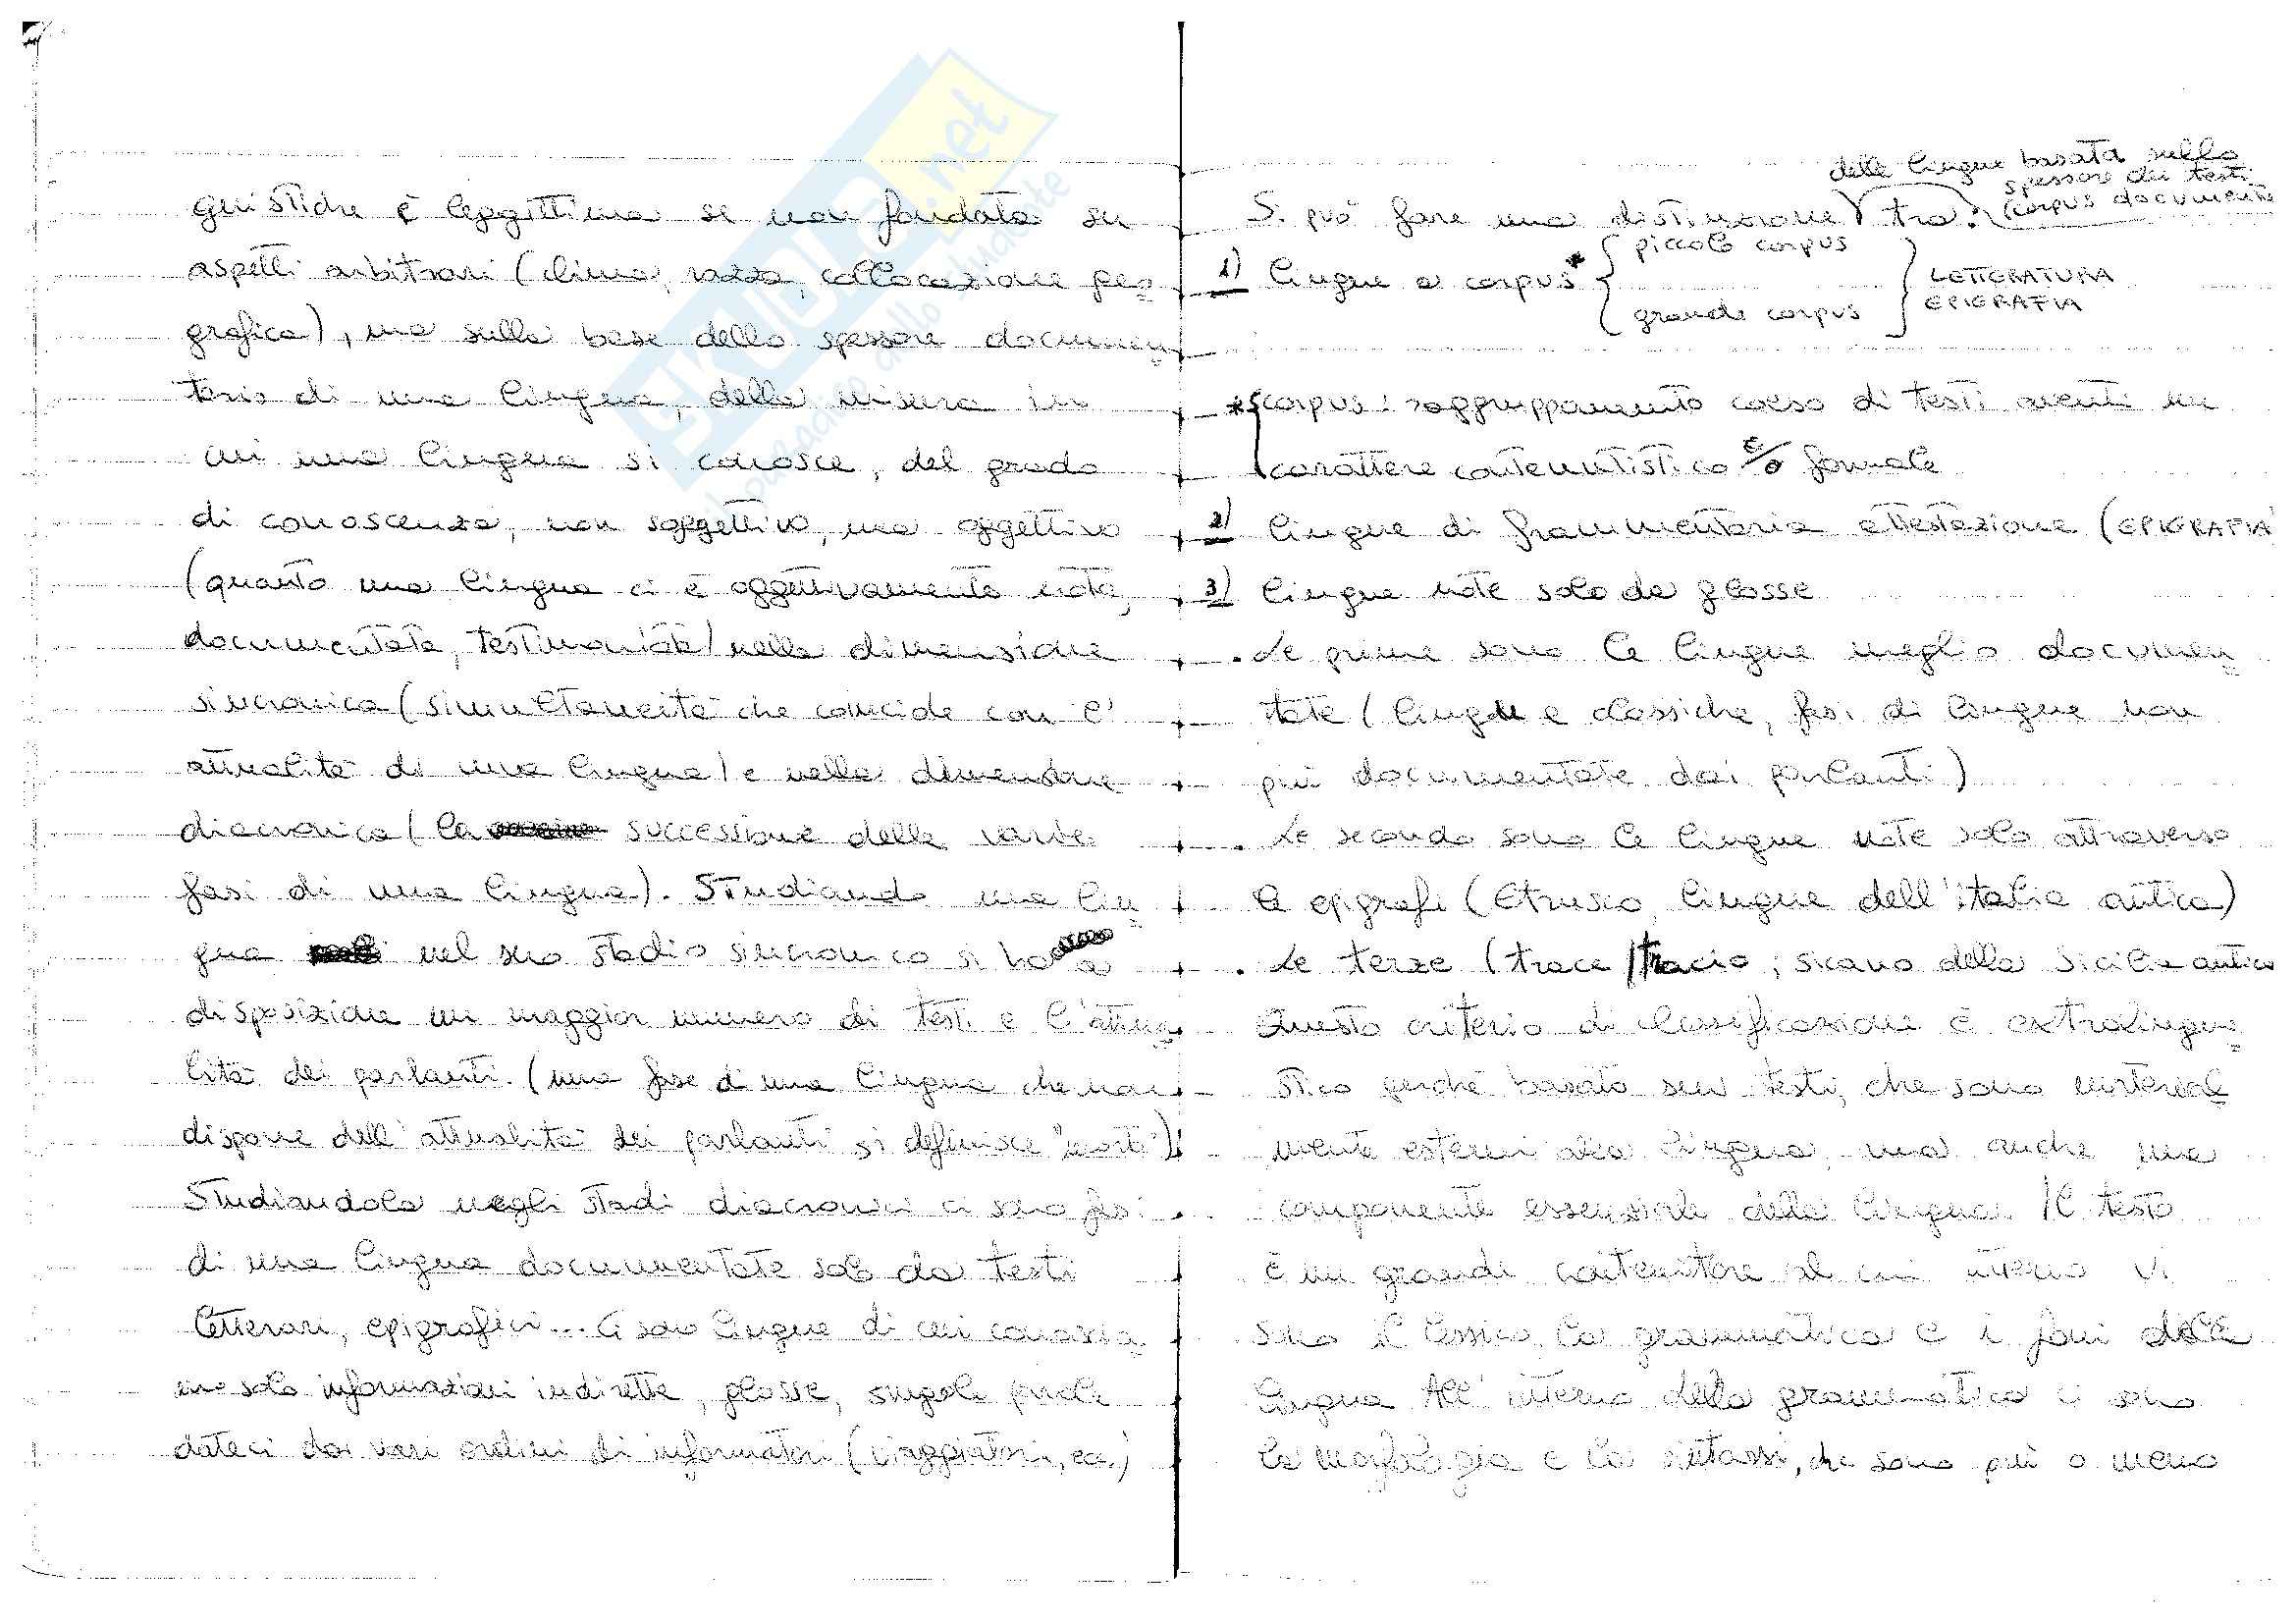 guistiche è leggittima se non fondata su
aspetti arbitrari (clima, razza, collocazione geo=
grafica), ma sulla base dello spessore documen=
tario di una lingua, della misura in
cui una lingua si conosce, del grado
di conoscenza, non soggettivo, ma oggettivo
(quanto una lingua ci è oggettivamente nota,
documentata, testimoniata) nella dimensione
sincronica (simultaneità che coincide con l'
attualità di una lingua) e nella dimensione
diacronica (la successione delle varie
fasi di una lingua). Studiando una lin=
gua nel suo stadio sincronico si ha a
disposizione un maggior numero di testi e l'attua=
lità dei parlanti. (una fase di una lingua che non
dispone dell'attualità dei parlanti si definisce "morta")
Studiandola negli stadi diacronici ci sono fasi
di una lingua documentate solo da testi
letterari, epigrafici... Ci sono lingue di cui conoscia=
mo solo informazioni indirette, glosse, singole parole
dateci dai vari ordini di informatori (viaggiatori, ecc.)
delle lingue basata sullo
spessore dei testi
(corpus documenti
Si può fare una distinzione tra:
1) lingue a corpus* { piccolo corpus
grande corpus } LETTERATURA
EPIGRAFIA
* corpus: raggruppamento coeso di testi aventi un
carattere contenutistico e/o formale
2) lingue di frammentaria attestazione (EPIGRAFIA)
3) lingue note solo da glosse
. Le prime sono le lingue meglio documen=
tate (lingue classiche, fasi di lingue non
più documentate dai parlanti)
. Le seconde sono le lingue note solo attraverso
le epigrafi (Etrusco, lingue dell'italia antica)
. Le terze (trace/tracio; sicano della Sicilia antica
Questo criterio di classificazione è extralingui=
stico perché basato sui testi, che sono material=
mente esterni alla lingua, ma anche una
componente essenziale della lingua. Il testo
è un grande contenitore al cui interno vi
sono il lessico, la grammatica e i foni della
lingua. All'interno della grammatica ci sono
la morfologia e la sintassi, che sono più o meno
SKUOLA.net